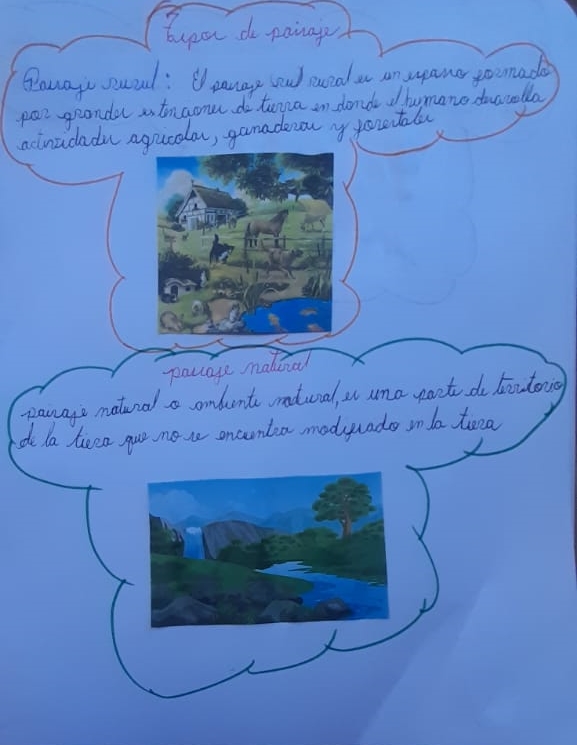 Tipos de paisaje
Paisaje rural: El paisaje rural es un espacio formado
por grandes extenciones de tierra en donde el humano desarolla
actividades agricolas, ganaderas y forestales
paisaje natural
paisaje natural o ambiente natural, es una parte de territorio
de la tierra que no se encuentra modificado en la tierra